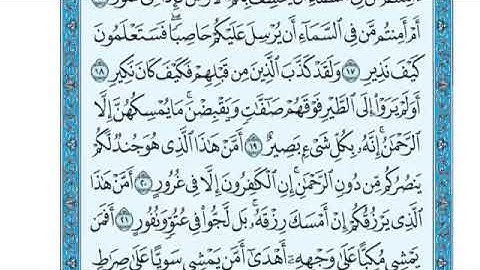 أَمْ أَمِنتُم مَّن فِى ٱلسَّمَآءِ أَن يُرْسِلَ عَلَيْكُمْ حَاصِبًا ۖ فَسَتَعْلَمُونَ
كَيْفَ نَذِيرِ ١٧ وَلَقَدْ كَذَّبَ ٱلَّذِينَ مِن قَبْلِهِمْ فَكَيْفَ كَانَ نَكِيرِ ١٨
أَوَلَمْ يَرَوْا۟ إِلَى ٱلطَّيْرِ فَوْقَهُمْ صَـٰٓفَّـٰتٍ وَيَقْبِضْنَ ۚ مَا يُمْسِكُهُنَّ إِلَّا
ٱلرَّحْمَـٰنُ ۚ إِنَّهُۥ بِكُلِّ شَىْءٍۭ بَصِيرٌ ١٩ أَمَّنْ هَـٰذَا ٱلَّذِى هُوَ جُندٌ لَّكُمْ
يَنصُرُكُم مِّن دُونِ ٱلرَّحْمَـٰنِ ۚ إِنِ ٱلْكَـٰفِرُونَ إِلَّا فِى غُرُورٍ ٢٠ أَمَّنْ هَـٰذَا
ٱلَّذِى يَرْزُقُكُمْ إِنْ أَمْسَكَ رِزْقَهُۥ ۚ بَل لَّجُّوا۟ فِى عُتُوٍّ وَنُفُورٍ ٢١ أَفَمَن
يَمْشِى مُكِبًّا عَلَىٰ وَجْهِهِۦٓ أَهْدَىٰٓ أَمَّن يَمْشِى سَوِيًّا عَلَىٰ صِرَٰطٍ